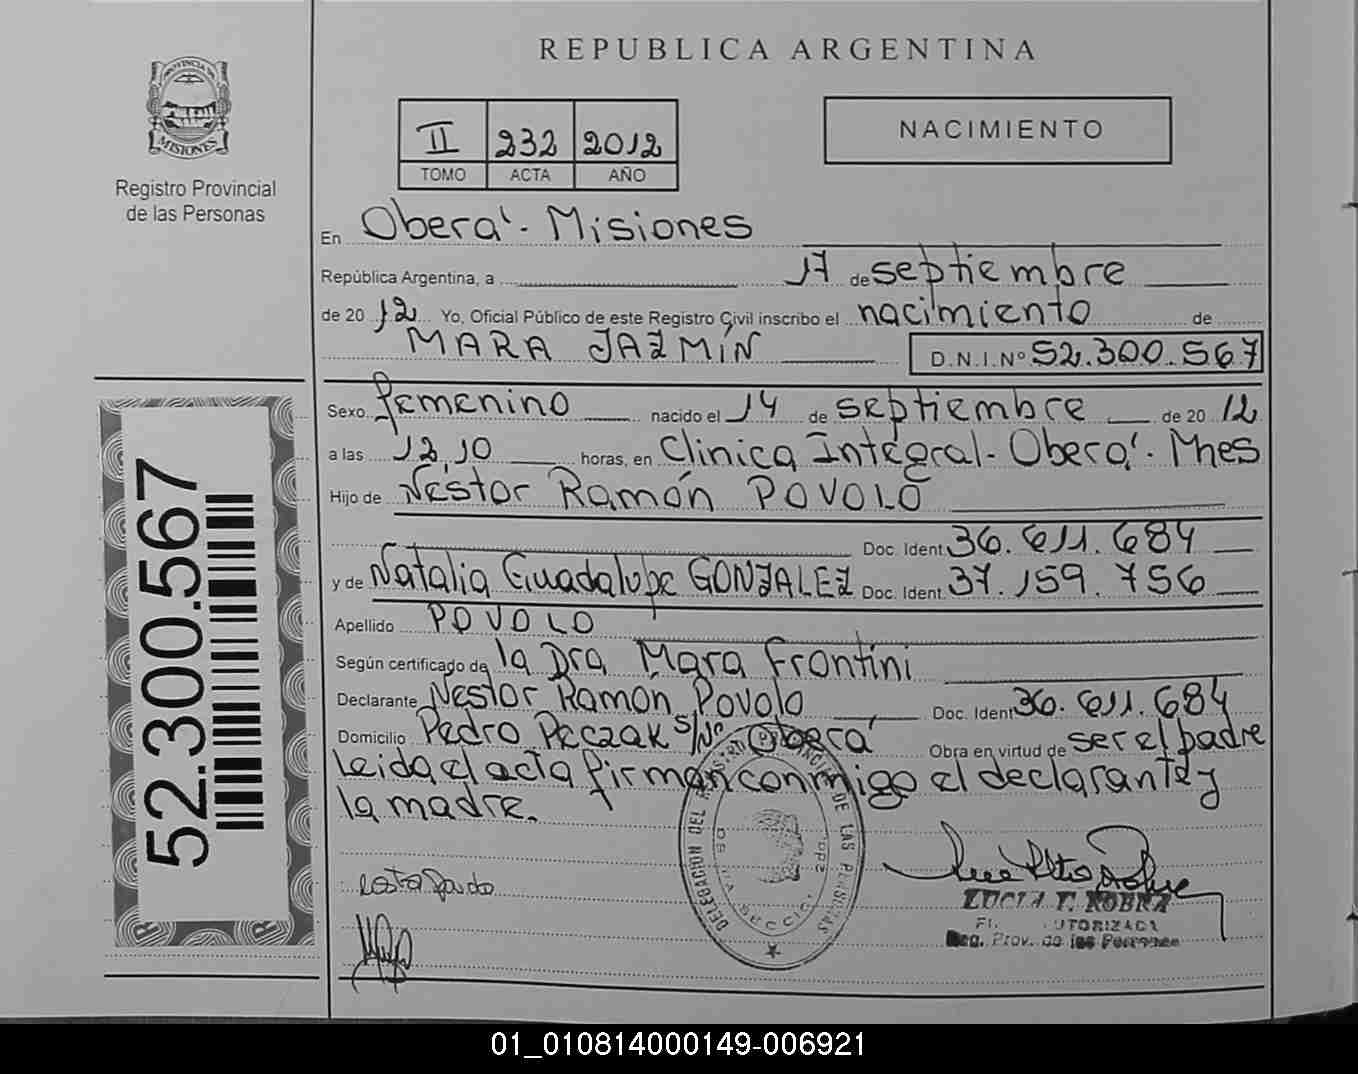 REPUBLICA ARGENTINA
PROVINCIA DE
MISIONES
Registro Provincial
de las Personas
II 232 2012
TOMO ACTA AÑO
NACIMIENTO
En Oberá - Misiones
República Argentina, a 17 de septiembre
de 2012 Yo, Oficial Público de este Registro Civil inscribo el nacimiento de
MARA JAZMÍN D.N.I. Nº 52.300.567
Sexo femenino nacido el 14 de septiembre de 2012
a las 12,10 horas, en Clinica Integral - Oberá - Mnes
Hijo de Néstor Ramón POVOLO
Doc. Ident. 36.611.684
y de Natalia Guadalupe GONZALEZ Doc. Ident. 37.159.756
Apellido POVOLO
Según certificado de la Dra Mara Frontini
Declarante Nestor Ramón Povolo Doc. Ident 36.611.684
Domicilio Pedro Peczak s/Nº Oberá Obra en virtud de ser el padre
Leida el acta firman conmigo el declarante y
la madre.
52.300.567
DELEGACION DEL REGISTRO PROVINCIAL DE LAS PERSONAS
AUTORIZADA
Reg. Prov. de las Personas
01_010814000149-006921